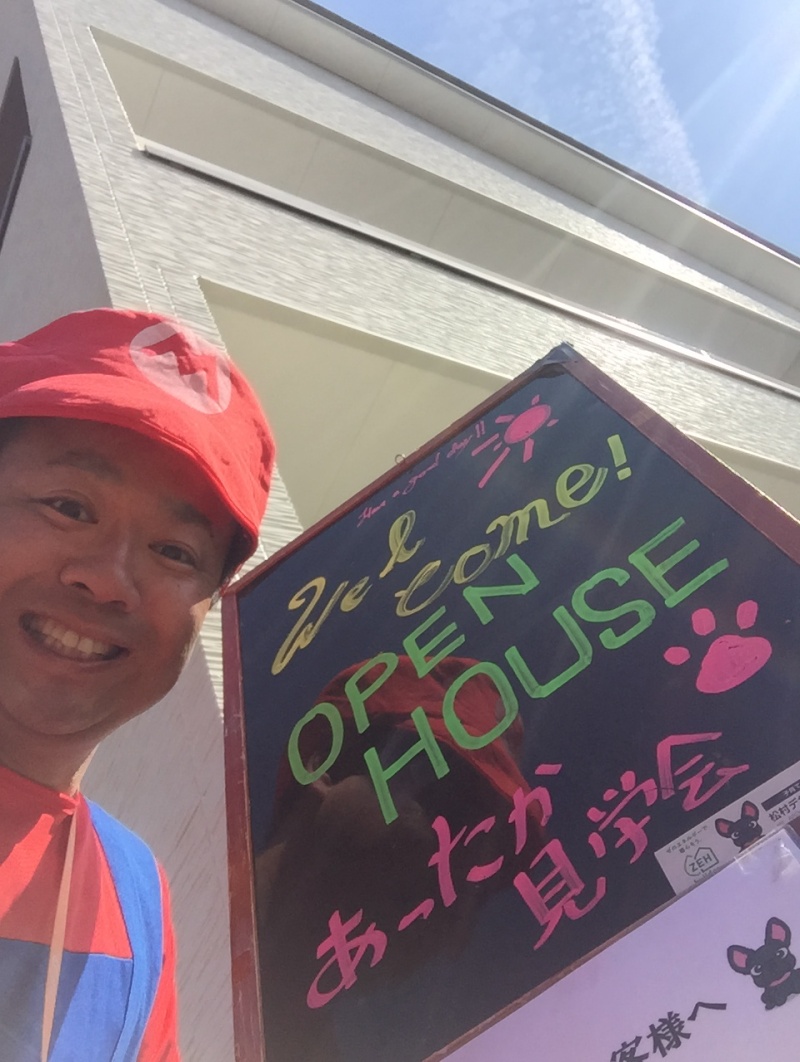 M
Have a good day!!
Wel
come!
OPEN
HOUSE
あったか
見学会
ZEH
松村デ
客様へ